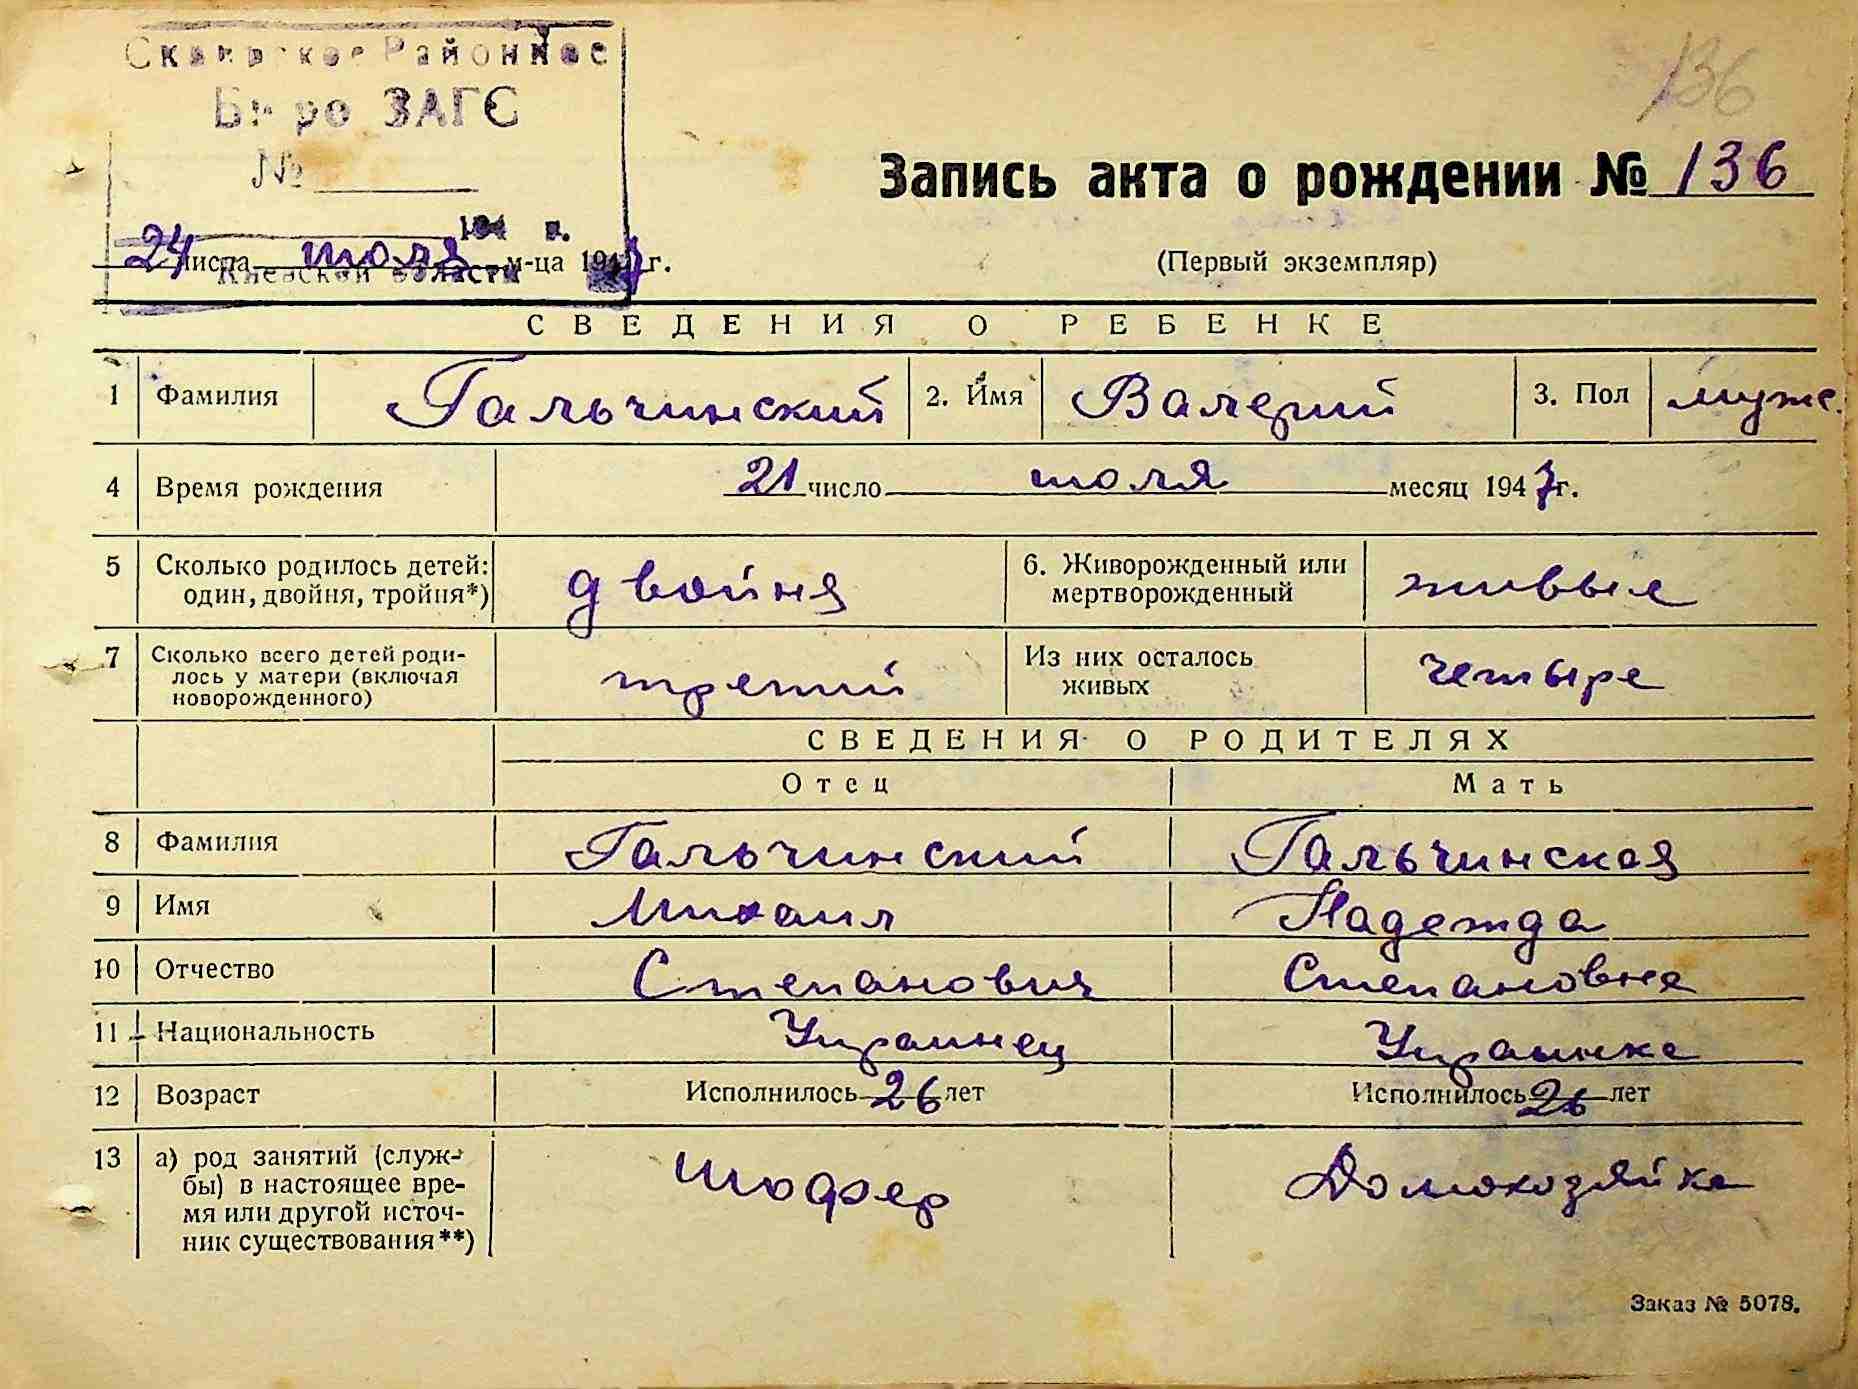 Районное
Бюро ЗАГС
№
194 г.
Киевской области
136
Запись акта о рождении № 136
24 числа июля м-ца 1947 г.
(Первый экземпляр)
СВЕДЕНИЯ О РЕБЕНКЕ
1 Фамилия Гальчинский 2. Имя Валерий 3. Пол муж.
4 Время рождения 21 число июля месяц 1947 г.
5 Сколько родилось детей: двойня 6. Живорожденный или живые
один, двойня, тройня*) мертворожденный
7 Сколько всего детей роди- третий Из них осталось четыре
лось у матери (включая живых
новорожденного)
СВЕДЕНИЯ О РОДИТЕЛЯХ
Отец Мать
8 Фамилия Гальчинский Гальчинская
9 Имя Михаил Надежда
10 Отчество Степанович Степановна
11 Национальность Украинец Украинка
12 Возраст Исполнилось 26 лет Исполнилось 26 лет
13 а) род занятий (служ- шофер Домохозяйка
бы) в настоящее вре-
мя или другой источ-
ник существования**)
Заказ № 5078.